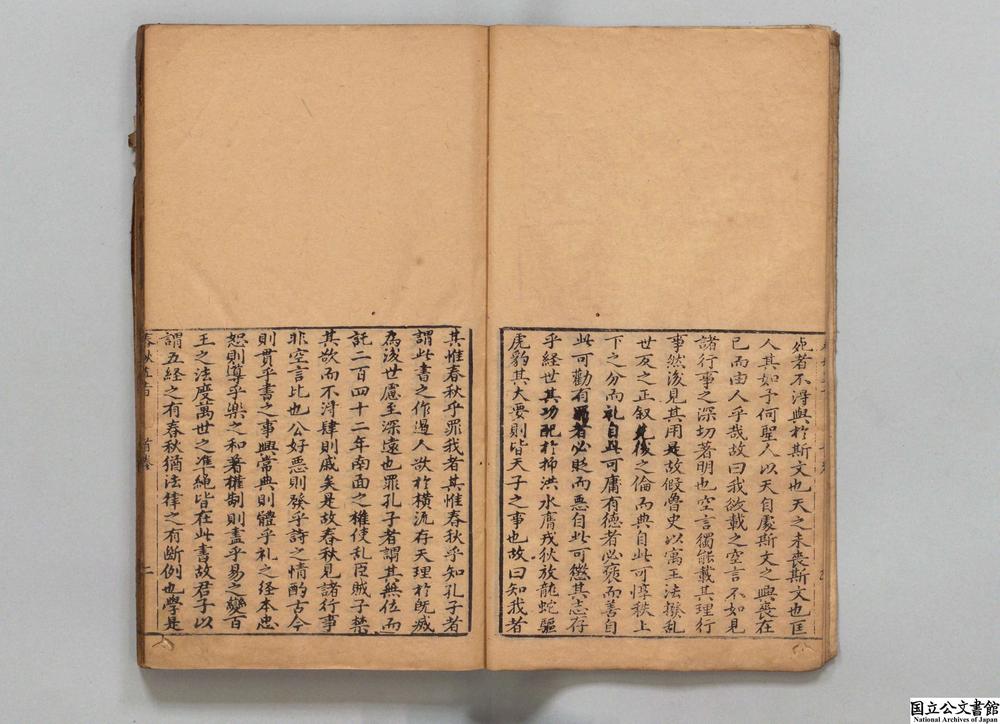 死者不淂與扵斯文也天之未丧斯文也匡
人其如予何聖人以天自處斯文之興丧在
已而由人乎哉故曰我欲載之空言不如見
諸行事之深切著明也空言獨能載其理行
事然後見其用是故假魯史以寓王法撥乱
世反之正叙先後之倫而典自此可惇秩上
下之分而礼自此可庸有德者必襃而善自
此可勸有罪者必贬而恶自此可懲其志存
乎経世其功配扵抑洪水膺戎狄放龍蛇驅
虎豹其大要則皆天子之事也故曰知我者
其惟春秋乎罪我者其惟春秋乎知孔子者
謂此書之作遏人欲扵横流存天理扵既滅
為後世慮至深遠也罪孔子者謂其無位而
託二百四十二年南面之權使乱臣賊子禁
其欲而不淂肆則戚矣是故春秋見諸行事
非空言比也公好恶則發乎詩之情酌古今
則貫乎書之事興常典則體乎礼之经本忠
恕則導乎楽之和著權制則盡乎易之變百
王之法度萬世之准繩皆在此書故君子以
謂五経之有春秋猶法律之有断例也學是
春秋 首卷 二
国立公文書館
National Archives of Japan